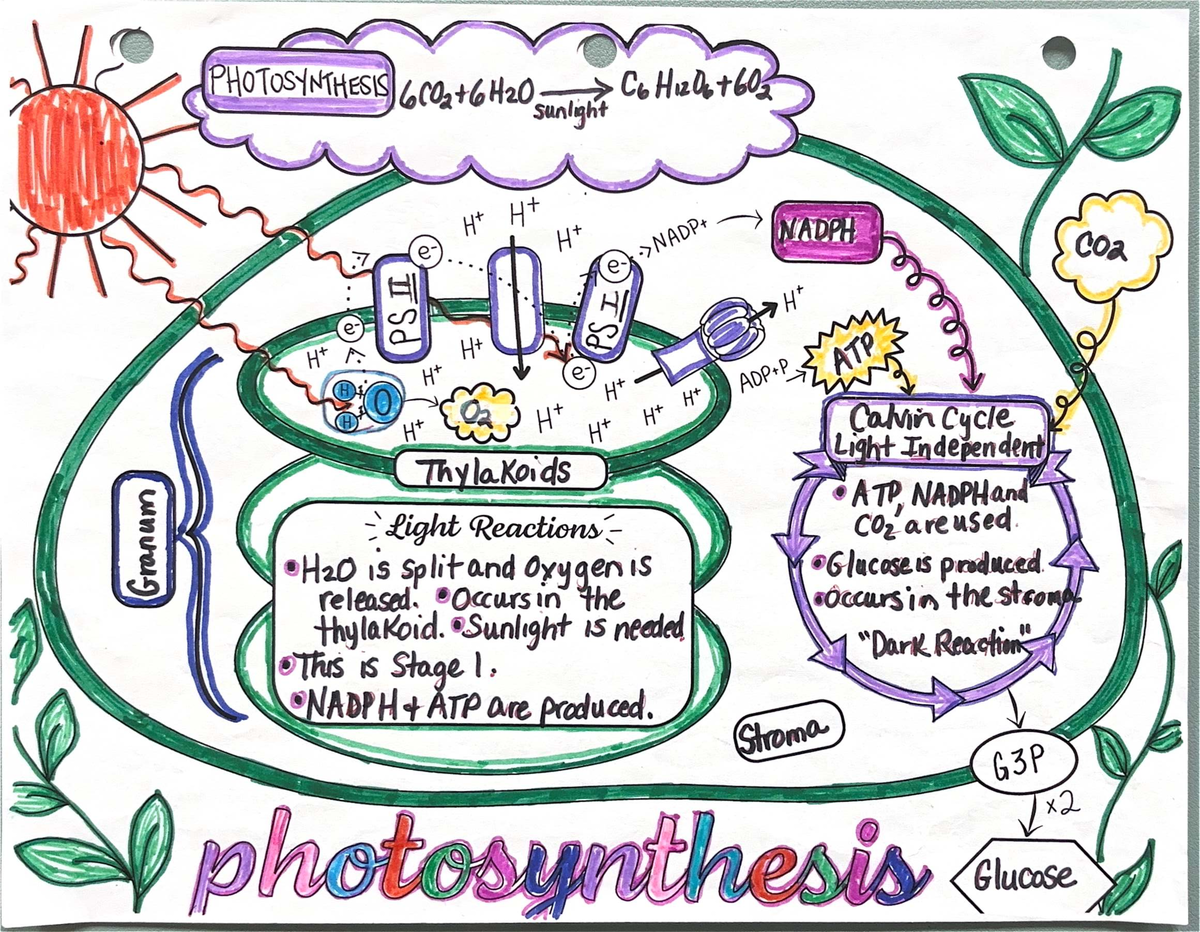 PHOTOSYNTHESIS
6CO2+6H2O → C6H12O6+6O2
sunlight
H+
H+
H+
NADP+
NADPH
CO2
e-
e-
PS II
PS I
H+
e-
H+
H+
e-
ADP+P
ATP
H+
H+
H+
H
H
O
O2
H+
H+
H+
H+
H+
Thylakoids
Calvin Cycle
Light Independent
• ATP, NADPH and
CO2 are used.
• Glucose is produced.
• Occurs in the stroma
"Dark Reaction"
Granum
Light Reactions
• H2O is split and Oxygen is
released. • Occurs in the
thylakoid. • Sunlight is needed
• This is Stage 1.
• NADPH + ATP are produced.
Stroma
G3P
x2
Glucose
photosynthesis